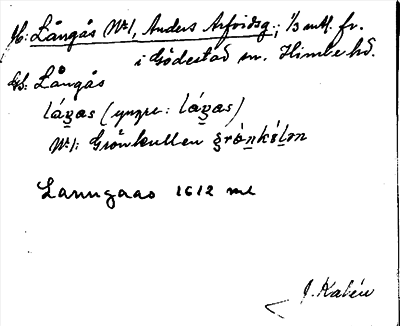 H: Långås No 1, Anders Arfvidsg.; 1/3 mtl. fr.
i Gödestad sn. Himle hd.
Gd: Långås
låŋas (yngre: låŋas)
No 1: Grönkullen grònkələn
Lanngaas 1612 ml
J. Kalén